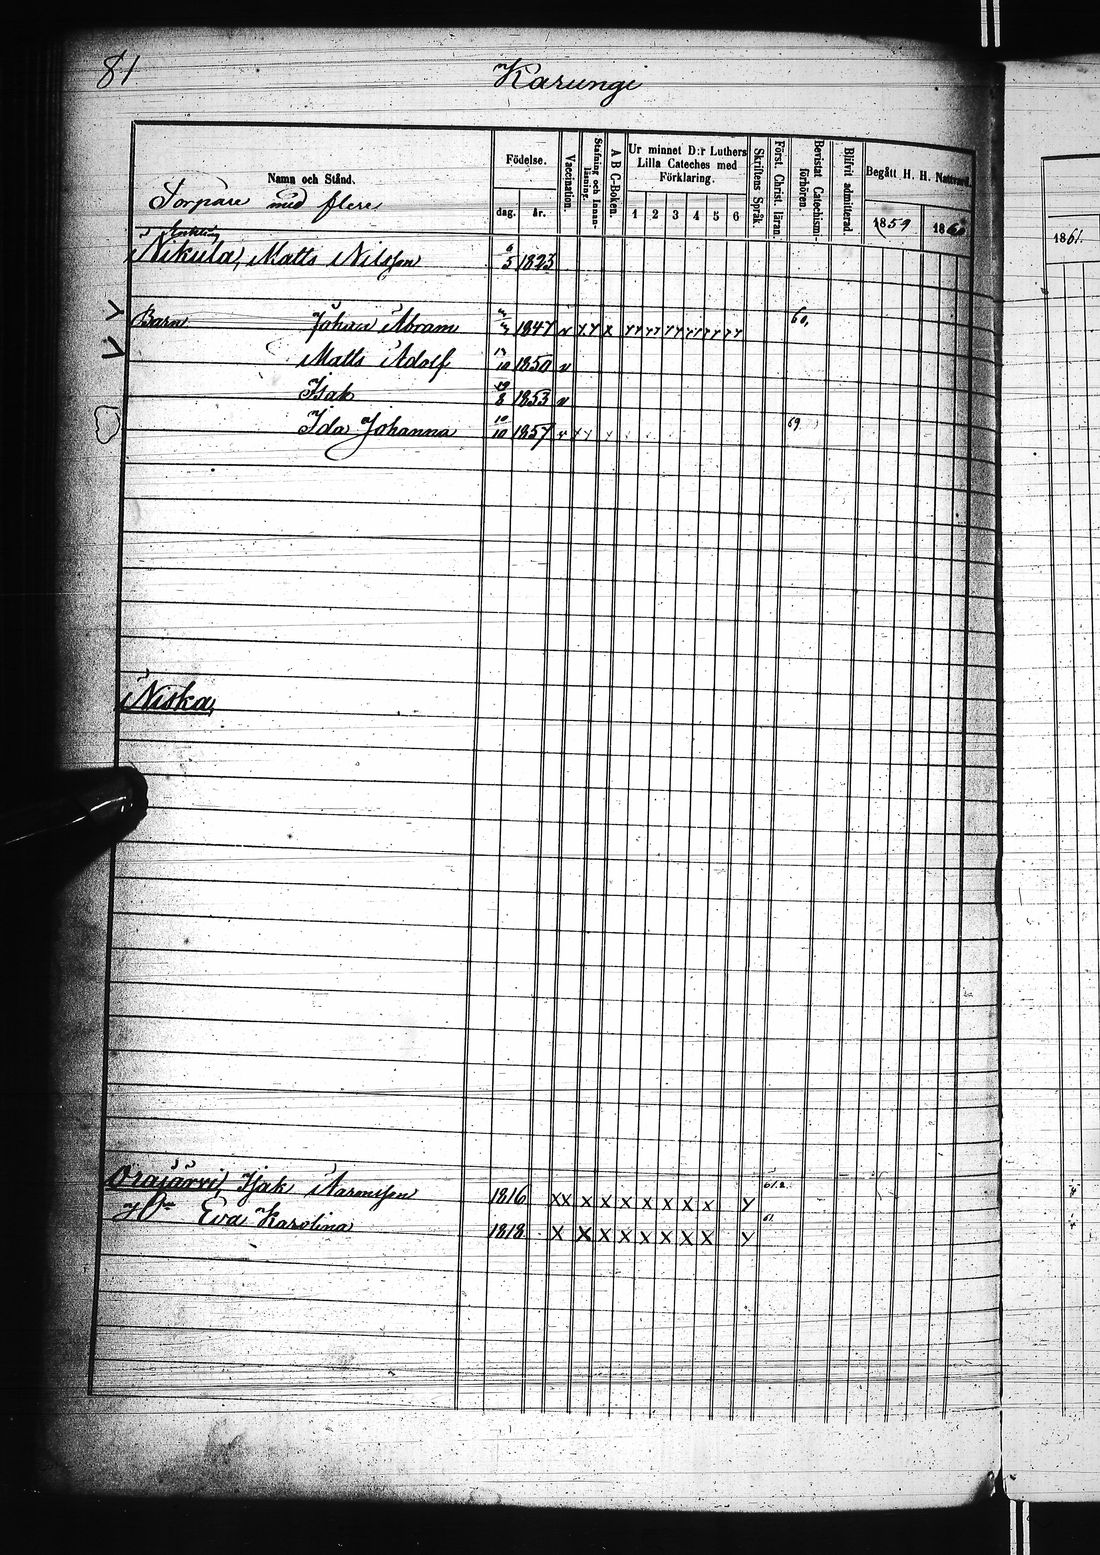 81
Karungi
Namn och Stånd.
Torpare med flere
Födelse.
dag. år.
Vaccination.
Stafning och Innan-läsning.
A B C-Boken.
Ur minnet D:r Luthers Lilla Cateches med Förklaring.
1 2 3 4 5 6
Skriftens Språk.
Först. Christ. läran.
Bevistat Catechismi-förhören.
Blifvit admitterad
Begått H. H. Nattvard.
1859 1860
1861.
Enkling
Nikula, Matts Nilsson 6/5 1823
Barn Johan Abram 1847 60,
Matts Adolf 17/10 1850 v
Isak 19/8 1853 v
Ida Johanna 10/10 1857 69
Niska,
Orajärvi, Isak Aronsson 1816 x x x x x x x x x y 61.2.
H:u Eva Karolina 1818 x x x x x x x x y 61